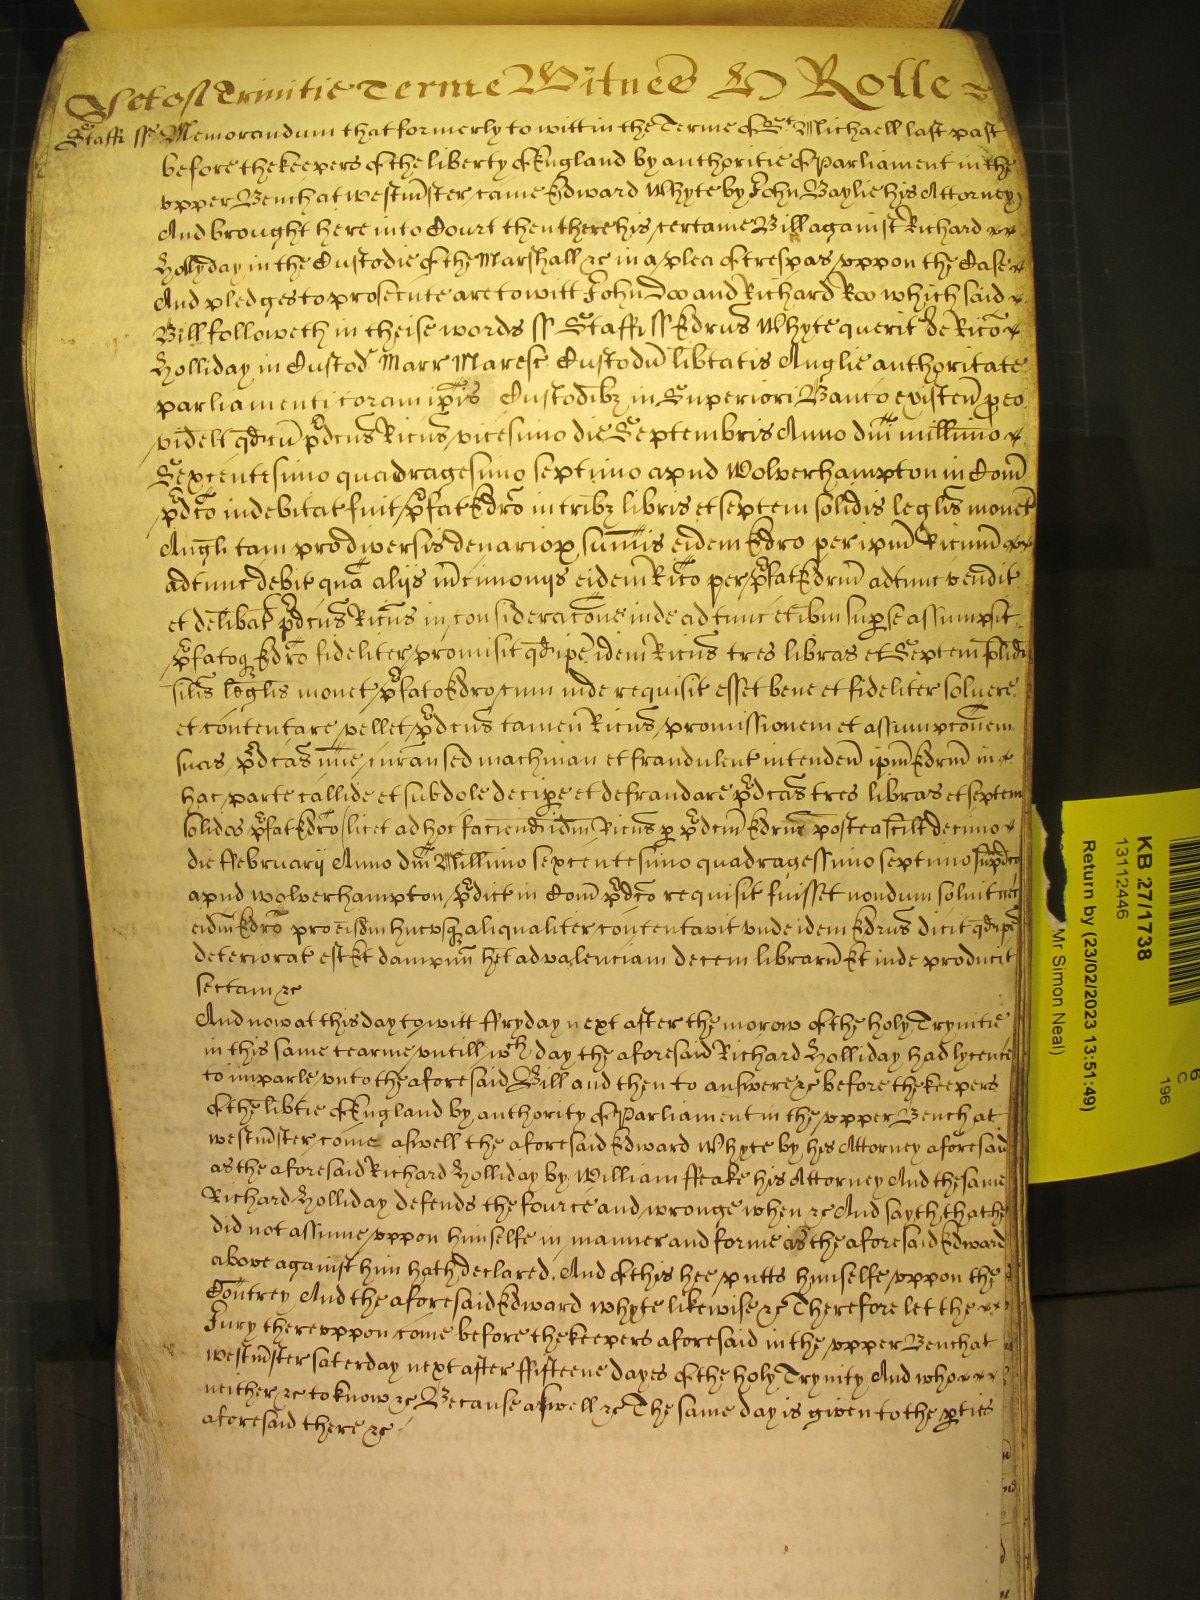 Yet of Trinitie Terme Witnes H Rolle
Staff ss Memorandum that formerly to witt in the Terme of St Michaell last past
before the keepers of the liberty of England by authoritie of Parliament in the
vpper Bench at westm̄ster came Edward Whyte by John Baylie his Attorney
And brought here into Court then there his certaine Bill against Richard
Hollyday in the Custodie of the Marshall &c in a plea of trespas vppon the Case
And pledges to prosecute are to witt John Doo and Richard Roo which said
Bill followeth in theise words ss Staff ss Edrus Whyte querit de Rico
Holliday in Custod Marr Maresc Custodū lib̄tatis Anglie authoritate
parliamenti coram ip̄is Custodib₃ in Superiori Banco existen̄ p eo
videlt qd cū p̄dcus Ricus vicesimo die Septembris Anno dm̄ millimo
Sexcentesimo quadragesimo septimo apud Wolverhampton in Com̄
p̄dco indebitat fuit p̄fat Edro in trib₃ libris et septem solidis leglis monet
Angli tam pro diversis denarior summis eidem Edro per ipm̄ Ricum
adtunc debit quā alijs m̄cimonijs eidem Rico per p̄fat Edrum adtunc vendit
et delibat p̄dcus Ricus in consideracōne inde adtunc et ib̄m sup se assumpsit
p̄fatoq₃ Edro fideliter promisit qd ip̄e idem Ricus tres libras et Septem
leglis monet p̄fato Edro cum inde requisit esset bene et fideliter solvere
et contentare vellet p̄dcus tamen Ricus promissionem et assumpcōnem
suas p̄dcas mīe curan sed machinan et fraudulent intenden̄ ipm̄ Edrum in
hac parte callide et subdole decipe et defraudare p̄dcas tres libras et septem
solidos p̄fat Edro licet ad hoc faciend idm̄ Ricus p p̄dcm̄ Edrum postea scilt decimo
die ffebruarij Anno dm̄ Millimo sexcentesimo quadragessimo septimo sup̄dco
apud wolverhampton p̄dict in Com̄ p̄dco requisit fuisset nondum solvit nec
eidm̄ Edro pro eisdm̄ hucusq₃ aliqualiter contentavit vnde idem Edrus dicit qd ip̄e
deteriorat est Et dampnū h̄et ad valenciam decem librarū Et inde producit
sectam &c
And now at this day to witt ffryday next after the morow of the holy Trynitie
in this same tearme vntill wch day the aforesaid Richard Holliday had lycence
to imparle vnto the aforesaid Bill and then to answere &c before the keepers
of the lib̄tie of England by authority of Parliament in the vpper Bench at
westm̄ster come aswell the aforesaid Edward Whyte by his Attorney aforesaid
as the aforesaid Richard Holliday by William ffeake his Attorney And the same
Richard Holliday defends the fource and wronge when &c And sayth that he
did not assume vppon himselfe in manner and forme as the aforesaid Edward
above against him hath declared. And of this hee putts himselfe vppon the
Countrey And the aforesaid Edward whyte likewise &c Therefore let the
Jury therevppon come before the keepers aforesaid in the vpper Bench at
westm̄ster saterday next after ffifteene dayes of the holy Trynity And who
neither &c to know &c Because aswell &c The same day is given to the pties
aforesaid there &c
KB 27/1738
13112446
Return by (23/02/2023 13:51:49)
Mr Simon Neal)
C
196